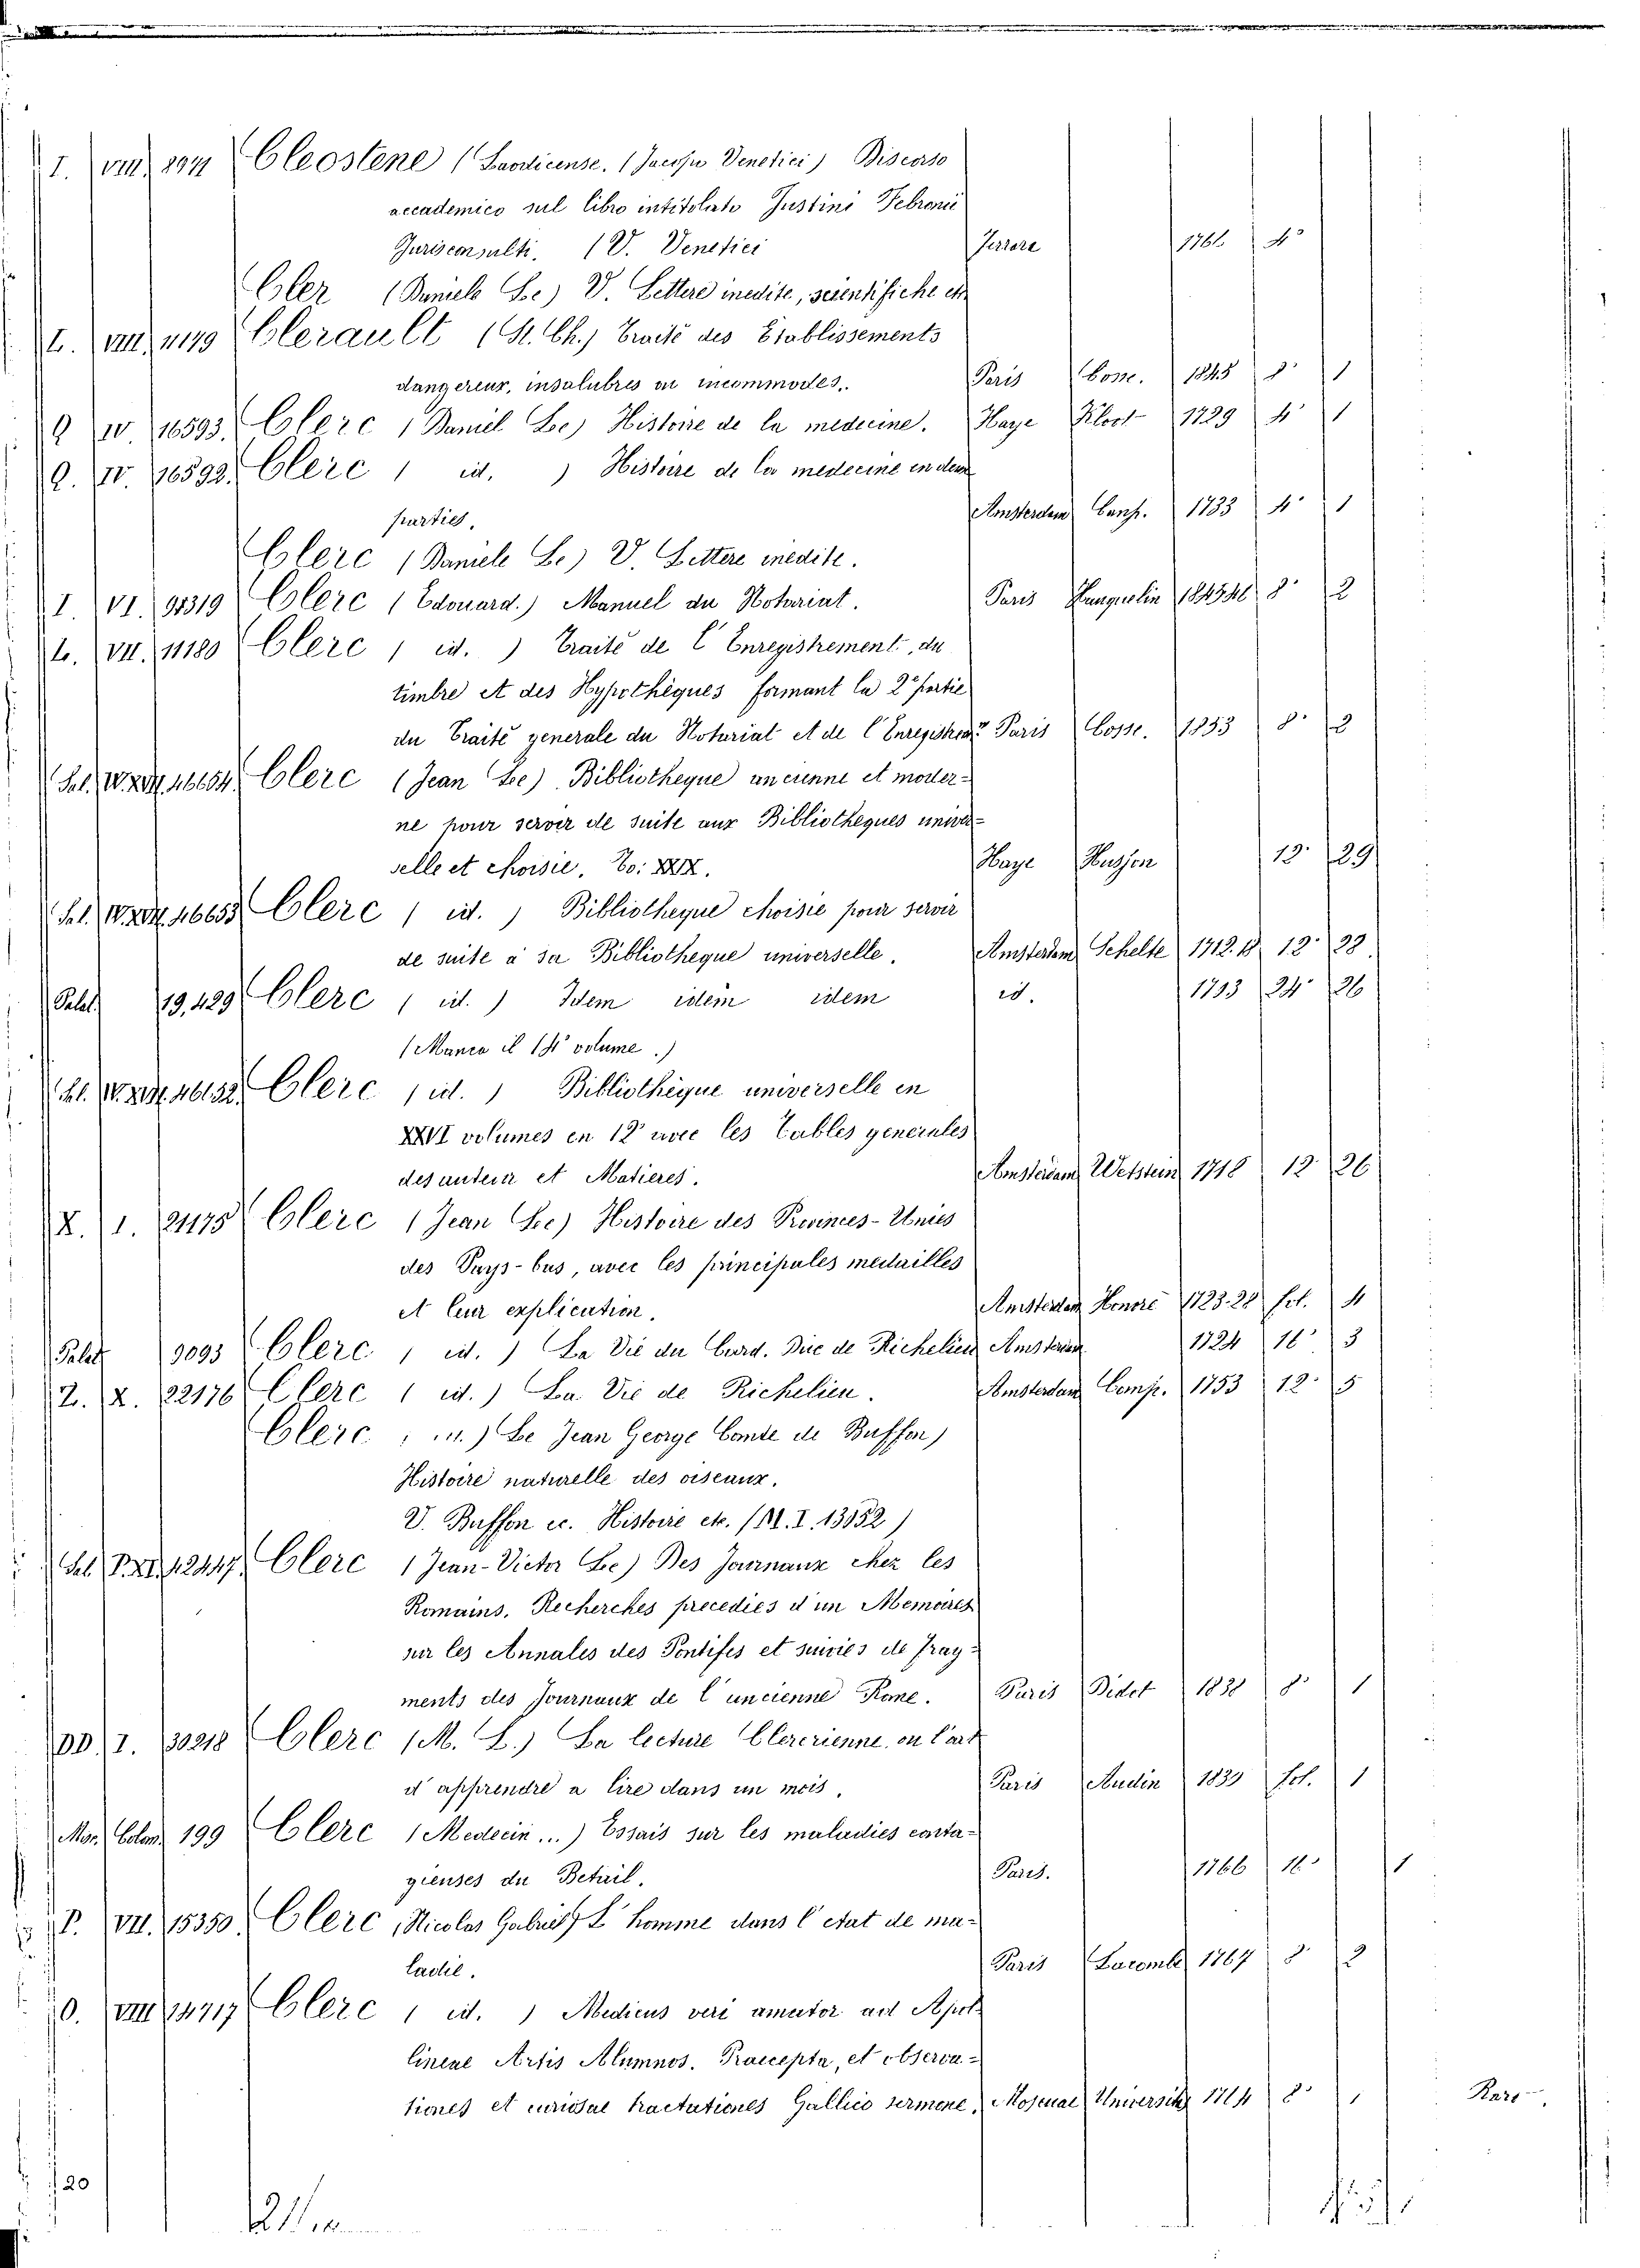 I. VIII. 8941 Cleostene (Laodicense. (Jacopo Venetici) Discorso
accademico sul libro intitolato Justini Febronii
Jurisconsulti. (V. Venetici Ferrare 1766 4°
Cler (Daniele Le) V. Lettere inedite, scientifiche etc
L. VIII. 11179 Clerault (St. Ch.) Traité des Etablissements
dangereux, insalubres ou incommodes. Paris Cosse. 1845 8° 1
Q IV 16593. Clerc (Daniel Le) Histoire de la medecine. Haye 1729 4° 1
Q. IV. 16592. Clerc ( id. ) Histoire de la medecine en deux
parties. Amsterdam Comp. 1733 4° 1
Clerc (Daniele Le) V. Lettere inedite.
I VI. 91319 Clerc (Edouard.) Manuel du Notariat. Paris 8° 2
L. VII. 11180 Clerc ( id. ) Traité de l'Enregistrement, du
timbre et des Hypothèques formant la 2e partie
du Traité generale du Notariat et de l'Enregistremt Paris Cosse. 1853 8° 2
46654. Clerc (Jean Le) Bibliotheque ancienne et moder-
ne pour servir de suite aux Bibliotheques univer-
selle et choisie. To: XXIX. Haye Husson 12° 29
46653 Clerc ( id. ) Bibliotheque choisie pour servir
de suite à sa Bibliotheque universelle. Amsterdam Schelte 1712.18 12° 28
Palat. 19,429 Clerc ( id. ) Idem idem idem id. 1733 24° 26
(Manca il 14° volume.)
46652. Clerc ( id. ) Bibliothèque universelle en
XXVI volumes en 12° avec les Tables generales
des auteur et Matieres. Amsterdam Wetstein 1718 12 26
X. I. 21175 Clerc (Jean Le) Histoire des Provinces-Unies
des Pays-bas, avec les principales medailles
et leur explication. Amsterdam Honoré 1723.28 fol. 4
Palat 9093 Clerc ( id. ) La Vie du Card. Duc de Richelieu Amsterdam 1724 16° 3
Z. X. 22176 Clerc ( id. ) La Vie de Richelieu. Amsterdam Comp. 1753 12° 5
Clerc ( id. ) Le Jean George Comte de Buffon)
Histoire naturelle des oiseaux.
V. Buffon ec. Histoire etc. (M. I. 13952)
42447. Clerc (Jean-Victor Le) Des Journaux chez les
Romains, Recherches precedies d'un Memoires
sur les Annales des Pontifes et suivies de frag-
ments des Journaux de l'ancienne Rome. Paris Didot 1838 8° 1
DD. I. 30218 Clerc (M. L.) La lecture Clercrienne ou l'art
d'apprendre a lire dans un mois. Paris Audin 1839 fol. 1
Mor. Colom. 199 Clerc (Medecin...) Essais sur les maladies conta-
gieuses du Betail. Paris. 1766 16° 1
P. VII. 15350. Clerc (Nicolas Gabriel) L'homme dans l'etat de ma-
ladie. Paris Lacombe 1767 8° 2
O. VIII 14717 Clerc ( id. ) Medicus veri amator ad Apol-
lineae Artis Alumnos. Praecepta, et observa-
tiones et curiosae tractationes Gallico sermone. Moscuae Universite 1764 8° 1 Raro
20